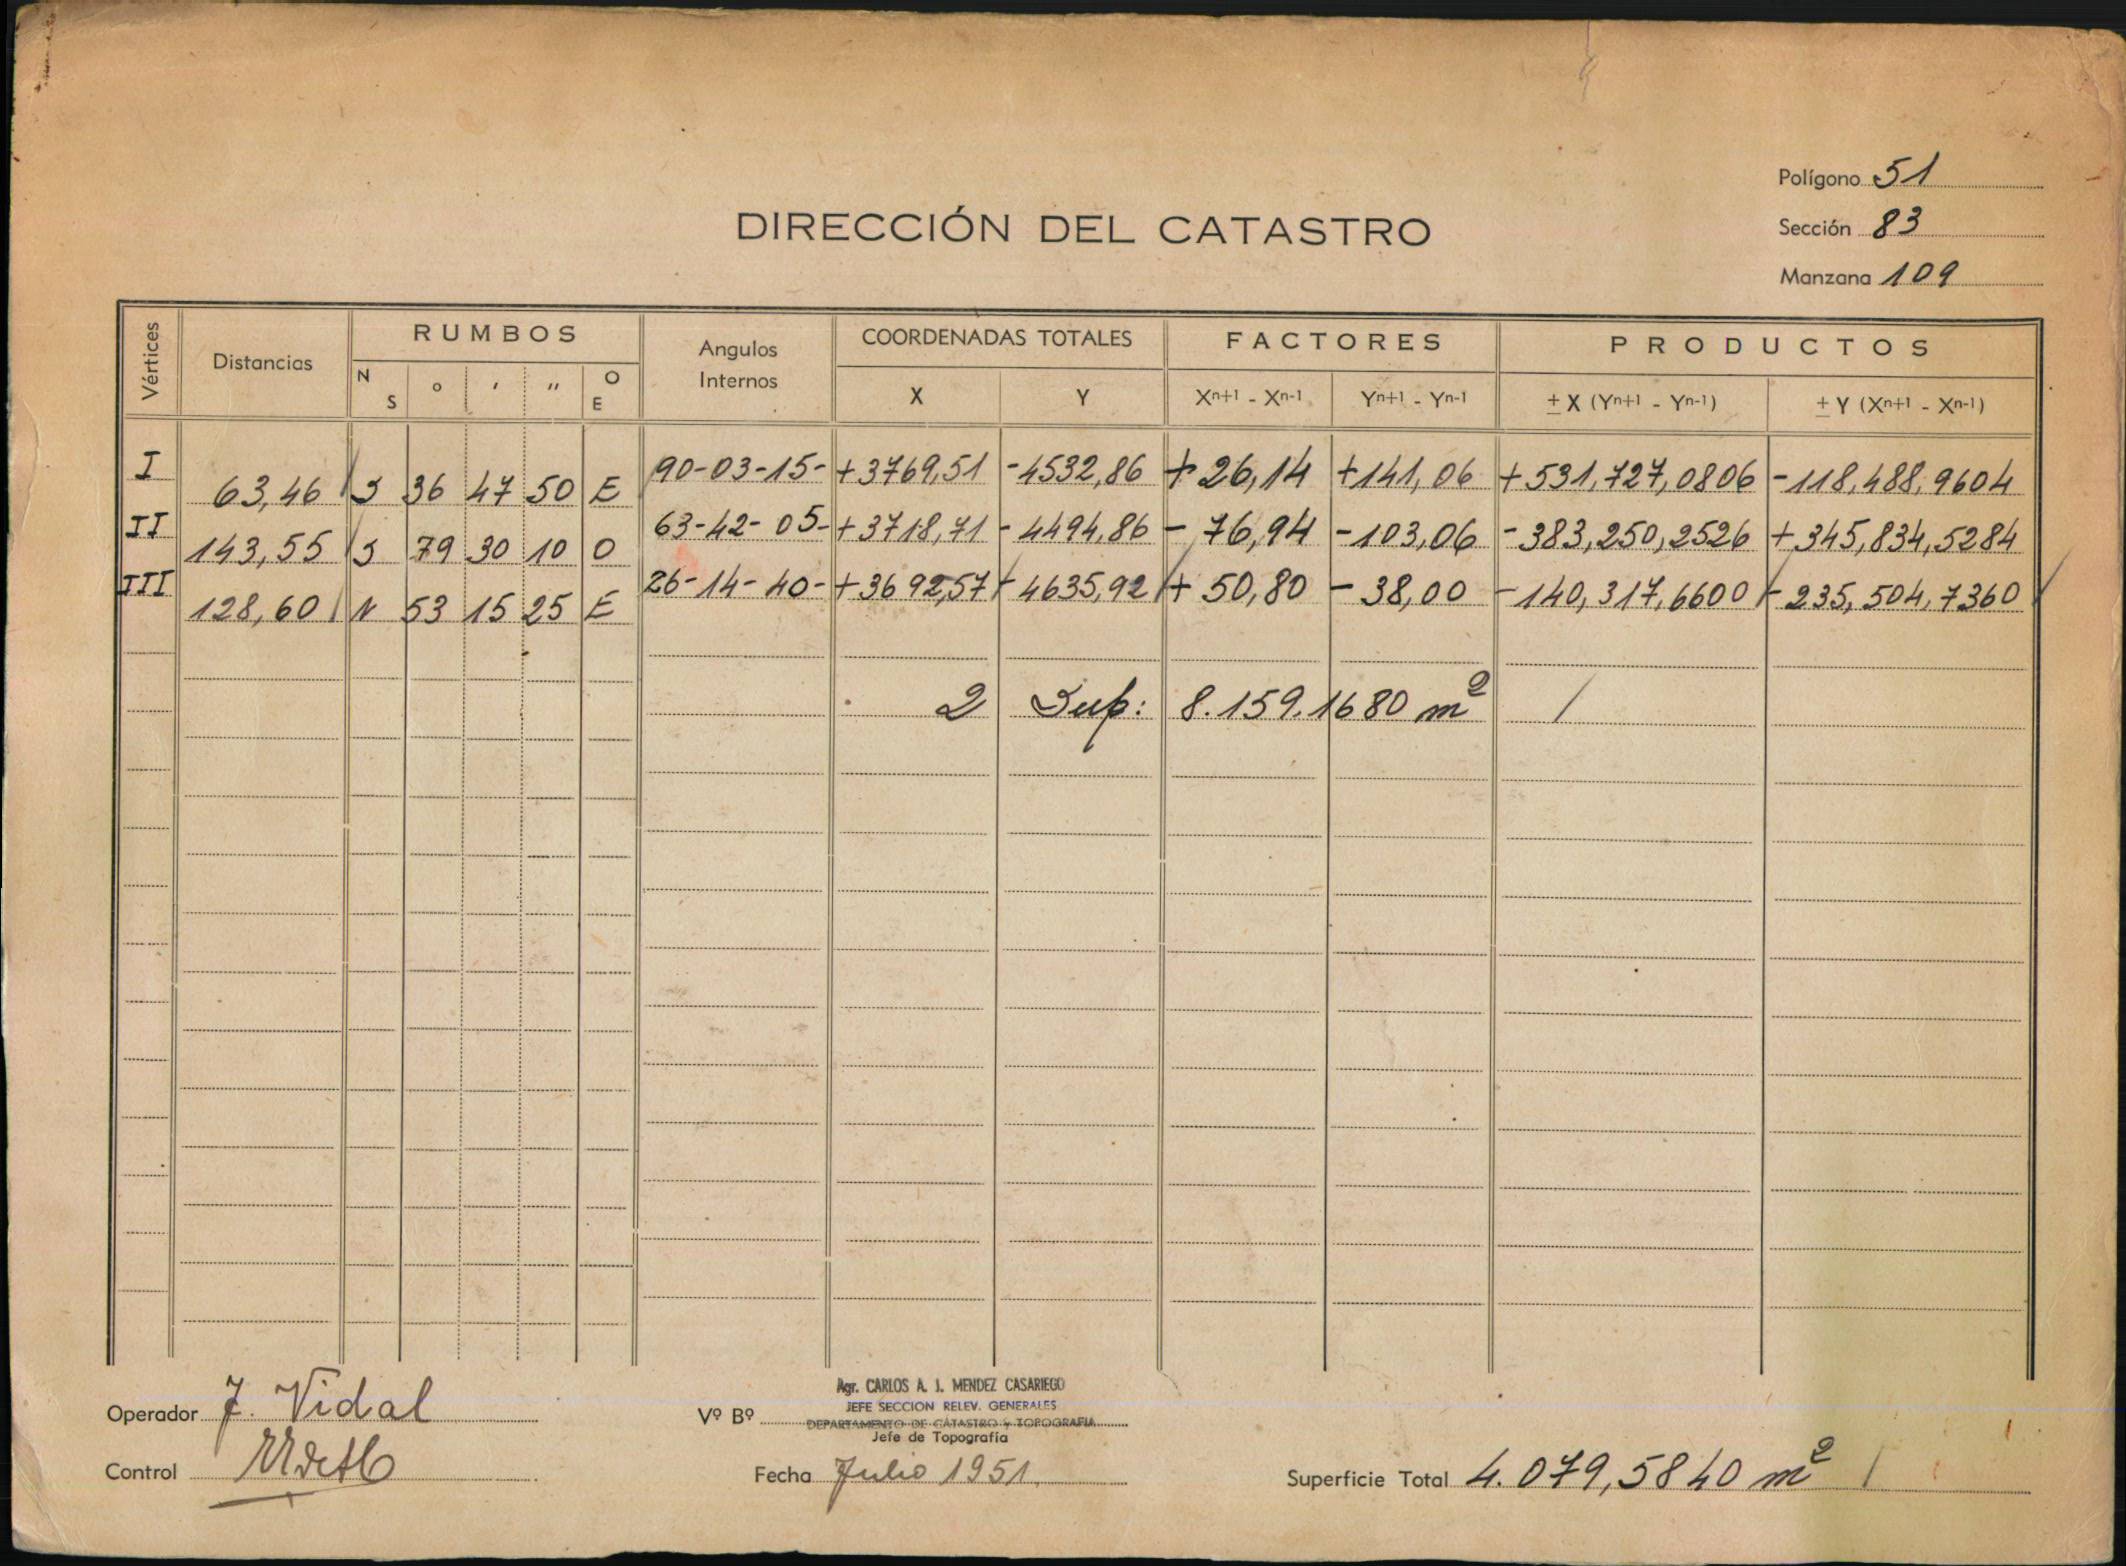 Polígono 51
DIRECCIÓN DEL CATASTRO
Sección 83
Manzana 109
Vértices Distancias RUMBOS Angulos Internos COORDENADAS TOTALES FACTORES PRODUCTOS
N S ° ' " O E X Y Xn+1 - Xn-1 Yn+1 - Yn-1 ± X (Yn+1 - Yn-1) ± Y (Xn+1 - Xn-1)
I 90-03-15- +3769,51 -4532,86 +26,14 +141,06 +531,727,0806 -118,488,9604
63,46 S 36 47 50 E
II 63-42-05- +3718,71 -4494,86 -76,94 -103,06 -383,250,2526 +345,834,5284
143,55 S 79 30 10 O
III 26-14-40- +3692,57 -4635,92 +50,80 -38,00 -140,317,6600 -235,504,7360
128,60 N 53 15 25 E
2 Sup: 8.159.1680 m²
Agr. CARLOS A. J. MENDEZ CASARIEGO
JEFE SECCION RELEV. GENERALES
Operador J. Vidal Vº Bº DEPARTAMENTO DE CATASTRO y TOPOGRAFIA
Jefe de Topografía
Control
Fecha Julio 1951. Superficie Total 4.079,5840 m²